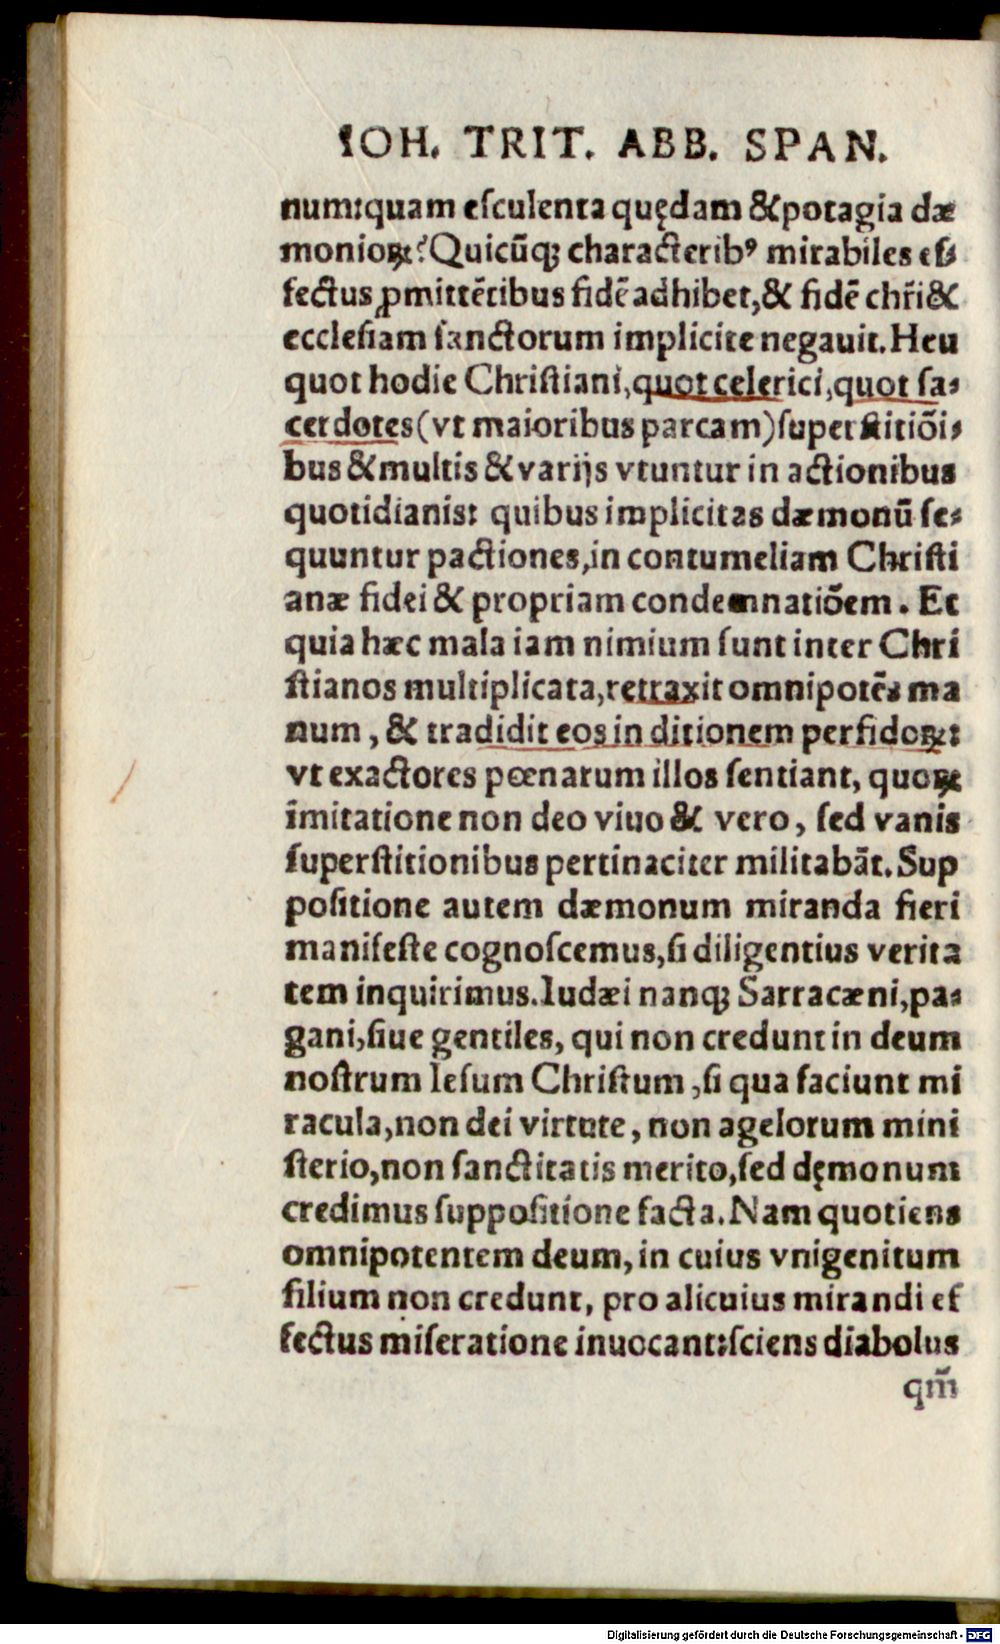 IOH. TRIT. ABB. SPAN.
num:quam eſculenta quędam & potagia dæ
monioꝝ? Quicūqꝫ characteribꝰ mirabiles ef-
fectus ꝓmittētibus fidē adhibet,& fidē chr̄i &
eccleſiam ſanctorum implicite negauit. Heu
quot hodie Chriſtiani,quot celerici,quot ſa-
cerdotes(vt maioribus parcam)ſuperſtitiōi-
bus & multis & varijs vtuntur in actionibus
quotidianis: quibus implicitas dæmonū ſe-
quuntur pactiones,in contumeliam Chriſti
anæ fidei & propriam condemnatiōem. Et
quia hæc mala iam nimium ſunt inter Chri
ſtianos multiplicata,retraxit omnipotēs ma
num, & tradidit eos in ditionem perfidoꝝ:
vt exactores pœnarum illos ſentiant, quoꝝ
imitatione non deo viuo & vero, ſed vanis
ſuperſtitionibus pertinaciter militabāt. Sup
poſitione autem dæmonum miranda fieri
manifeſte cognoſcemus,ſi diligentius verita
tem inquirimus. Iudæi nanqꝫ Sarracæni,pa-
gani,ſiue gentiles, qui non credunt in deum
noſtrum Ieſum Chriſtum,ſi qua faciunt mi
racula,non dei virtute, non agelorum mini
ſterio,non ſanctitatis merito,ſed dęmonum
credimus ſuppoſitione facta. Nam quotiens
omnipotentem deum, in cuius vnigenitum
filium non credunt, pro alicuius mirandi ef
fectus miſeratione inuocant:ſciens diabolus
qm̄
Digitalisierung gefördert durch die Deutsche Forschungsgemeinschaft - DFG